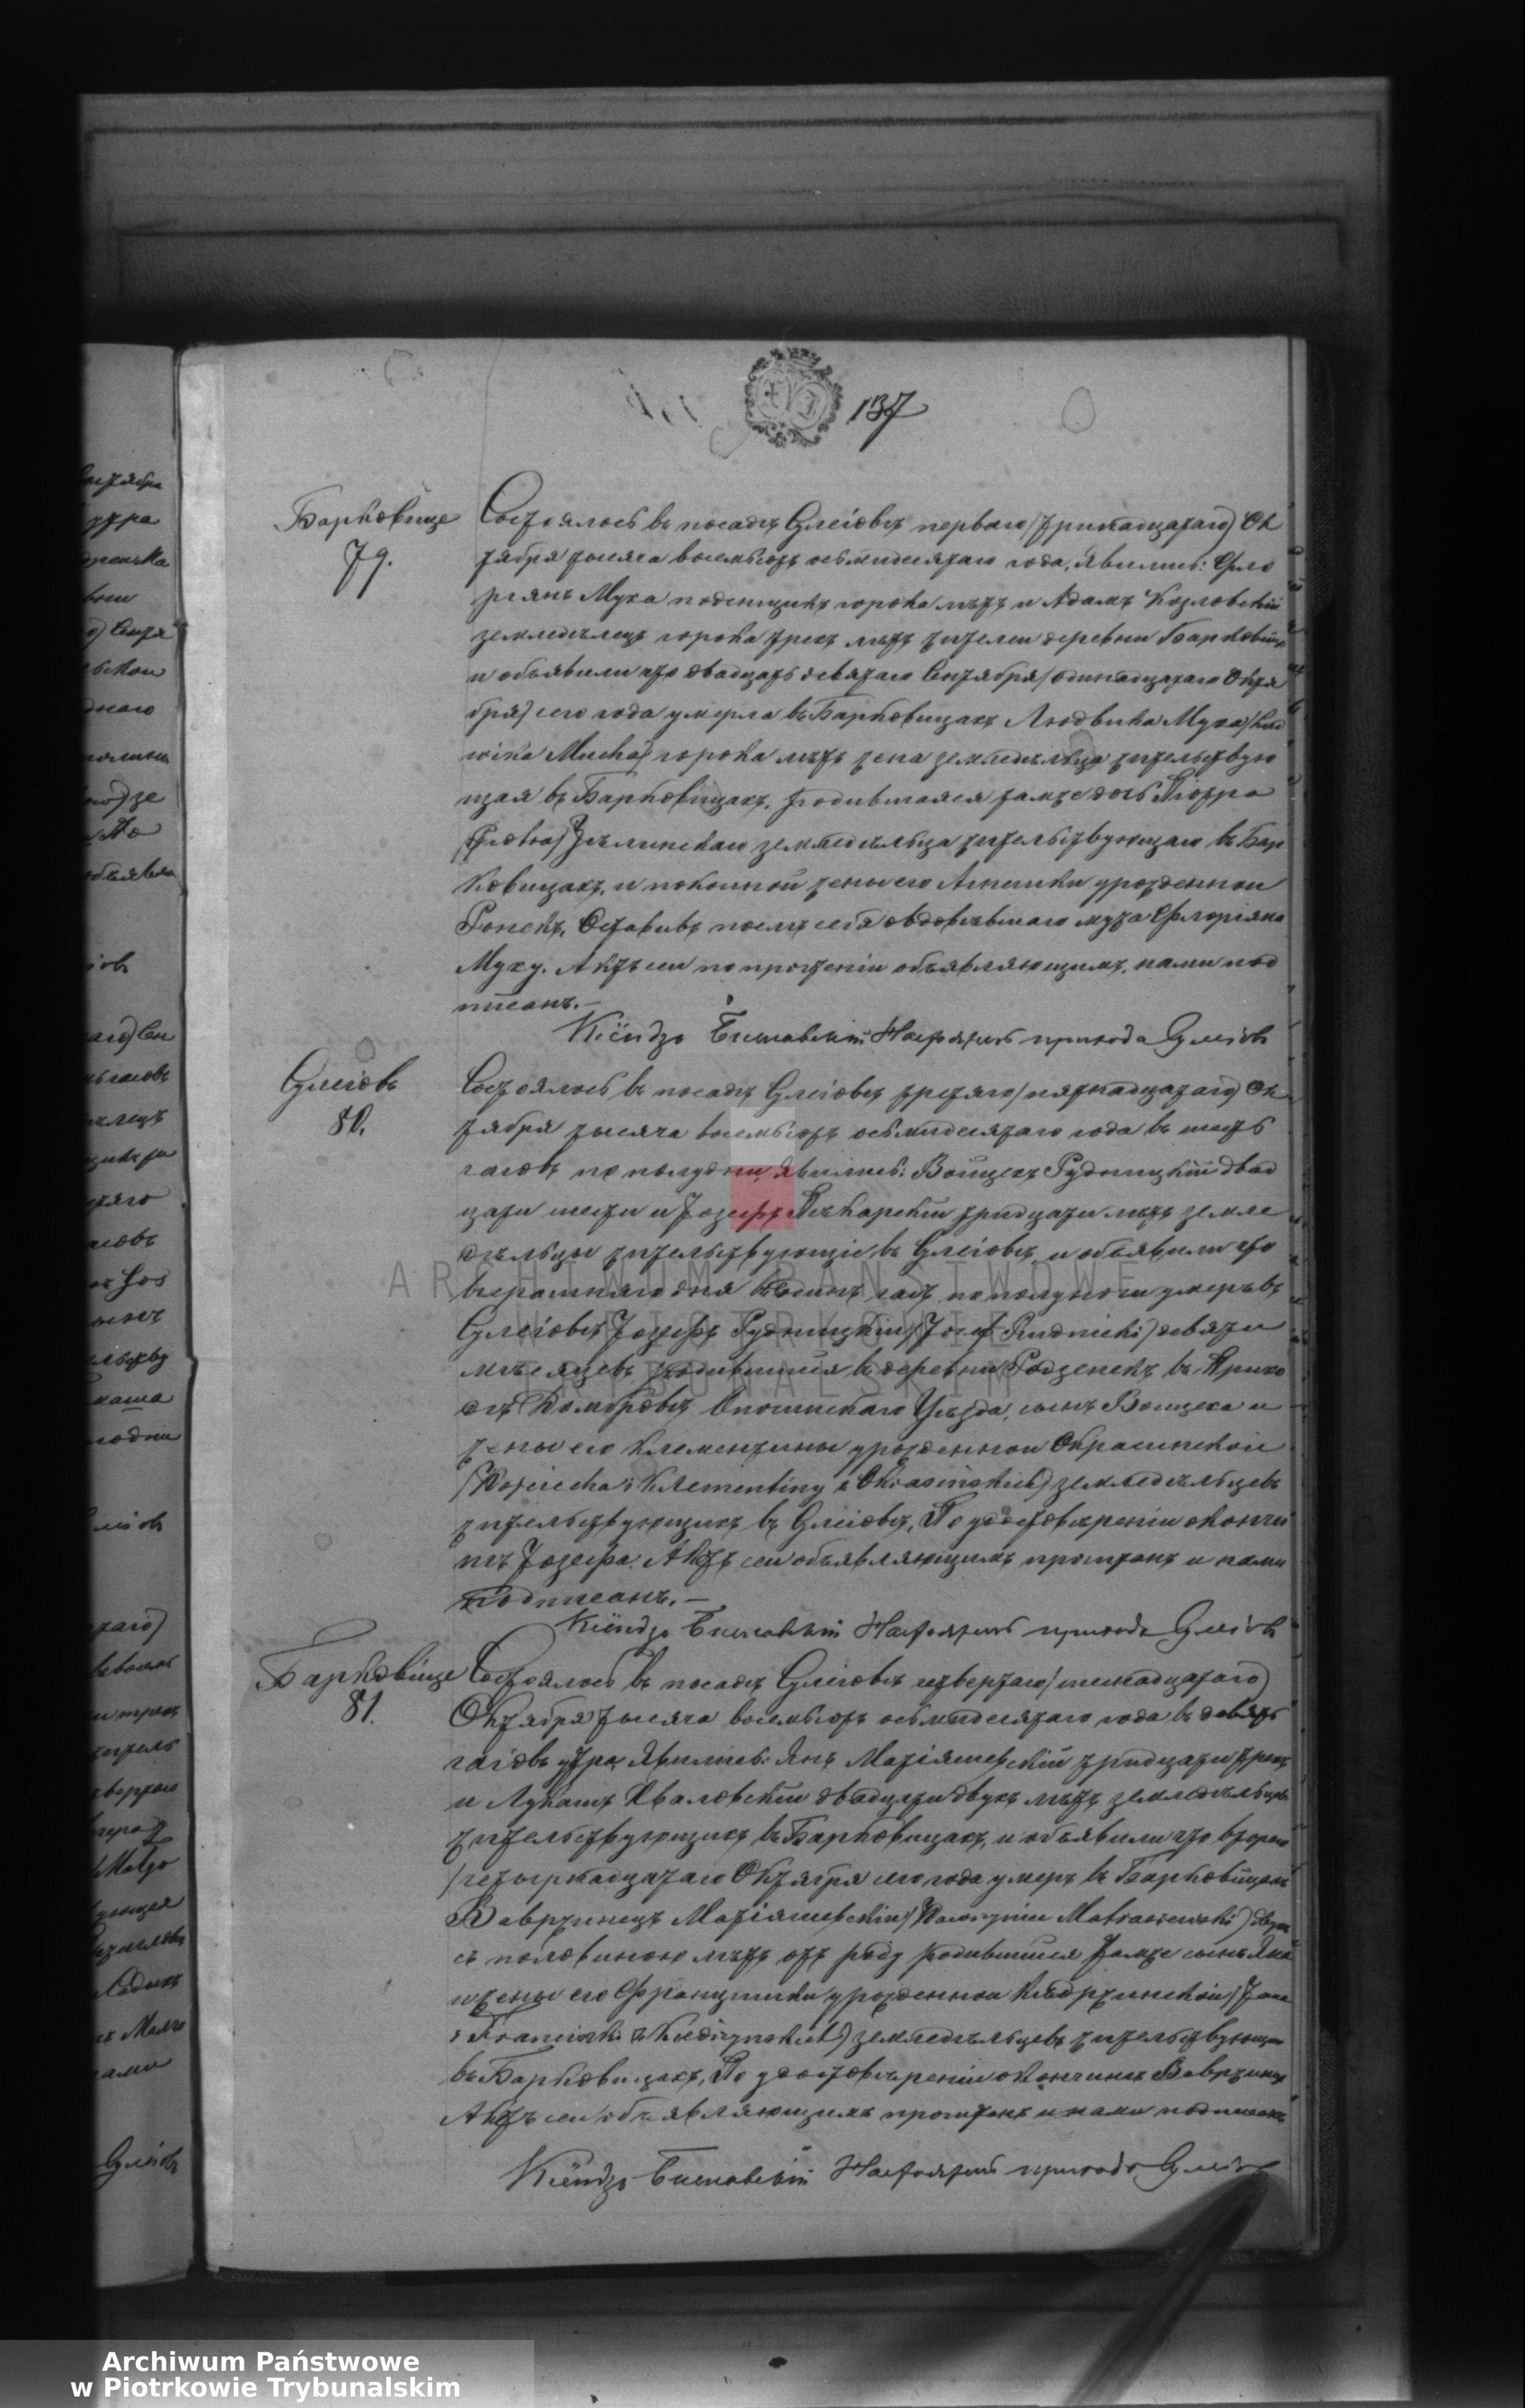 137
Барковице
79.
Состоялось въ посадѣ Сулеіовѣ перваго /тринадцатаго/ Ок
тября тысяча восемьсотъ осьмидесятаго года, явились: Фло
ріянъ Муха поденщикъ сорока лѣтъ и Адамъ Козловскій
земледѣлецъ сорока трехъ лѣтъ жители деревни Барковице
и объявили что двадцать девятаго Сентября /одинадцатаго Октя
бря/ сего года умерла въ Барковицахъ Людвика Муха /Lud
wika Mucha/ сорока лѣтъ жена земледѣльца жительствую
щая въ Барковицахъ, родившаяся тамже дочь Піотра
земледѣльца жительствующаго въ Бар
ковицахъ, и покойной жены его Агнешки урожденной
Оставивъ послѣ себя овдовѣвшаго мужа Флоріяна
Муху. Актъ сей по прочтеніи объявляющимъ, нами под
писанъ.—
Ксёндзъ Настоятель прихода Сулеіовъ
Сулеіовъ
80.
Состоялось въ посадѣ Сулеіовѣ третяго /пятнадцатаго/ Ок
тября тысяча восемьсотъ осьмидесятаго года въ шесть
часовъ по полудни, явились: Войцехъ Рудницкій двад
цати шести и Іозефъ Пѣкарскій тридцати лѣтъ земле
дѣльцы жительствующіе въ Сулеіовѣ, и объявили что
вчерашняго дня въ одинъ часъ по полуночи умеръ въ
Сулеіовѣ Іозефъ Рудницкій /Józef Rudnicki/ девяти
мѣсяцевъ родившійся въ деревни въ Прихо
дѣ Домбровѣ Опочинскаго Уѣзда, сынъ Войцеха и
жены его Клементины урожденной Окрасинской
/Wojciecha i Klementiny z Okrasińskich/ земледѣльцевъ
жительствующихъ въ Сулеіовѣ, По удостовѣреніи о кончи
нѣ Іозефа. Актъ сей объявляющимъ прочитанъ и нами
подписанъ.—
Ксёндзъ Настоятель прихода Сулеіовъ
Барковице
81.
Состоялось въ посадѣ Сулеіовѣ четвертаго /шеснадцатаго/
Октября тысяча восемьсотъ осьмидесятаго года въ девять
часовъ утра, явились: Янъ Матіяшевскій тридцати трехъ
и Лукашъ Хваловскій двадцати двухъ лѣтъ земледѣльцы
жительствующихъ въ Барковицахъ, и объявили что втораго
/четырнадцатаго Октября сего года умеръ въ Барковицахъ
Вавржинецъ Матіяшевскій /Wawrzyniec Matiaszewski/ двухъ
съ половиною лѣтъ отъ роду родившійся тамже сынъ Яна
и жены его Францишки урожденной Кендржинской /Jana
i Franciszki z Kiedrzynskich/ земледѣльцевъ жительствующихъ
въ Барковицахъ, По удостовѣреніи о кончинѣ Вавржинца
Актъ сей объявляющимъ прочитанъ и нами подписанъ
Ксёндзъ Настоятель прихода Сулеіовъ
ARCHIWUM PAŃSTWOWE
W PIOTRKOWIE
TRYBUNALSKIM
Archiwum Państwowe
w Piotrkowie Trybunalskim